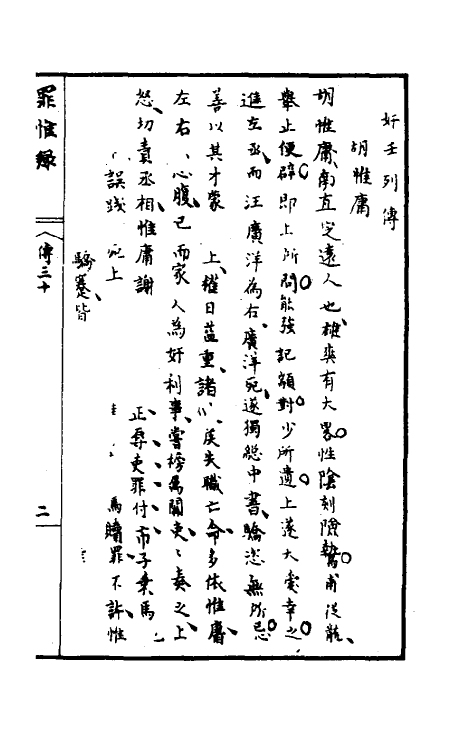 奸壬列傳
胡惟庸
胡惟庸南直定遠人也雄爽有大畧性陰刻險鷙甫從龍
舉止便辟即上所問能強記額對少所遺上遂大愛幸之
進左丞而汪廣洋為右廣洋死遂獨總中書驕恣無所忌
善以其才蒙 上權日益重諸
侯失職亡命多依惟庸
左右心腹已而家人為奸利事嘗榜辱關吏〻奏之上
怒切責丞相惟庸謝
正辱吏罪付市子乗馬
誤踐 死上
馬贖罪不許惟
驕蹇皆
罪惟録
傳三十
二